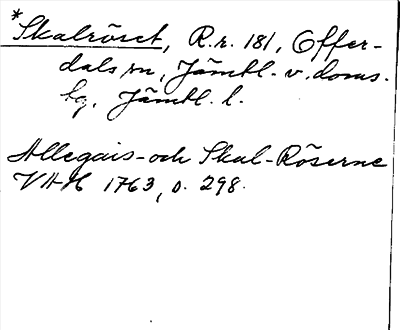 *Skalröset, R.r. 181, Offer-
dals sn, Jämtl. v. doms.
hg, Jämtl. l.
Allegais- och Skal-Röserne
VAH 1763, s. 298.